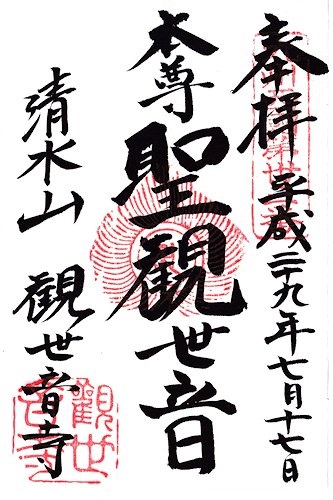 奉拝 平成二十九年七月十七日
本尊 聖觀世音
清水山 觀世音寺
觀世音寺